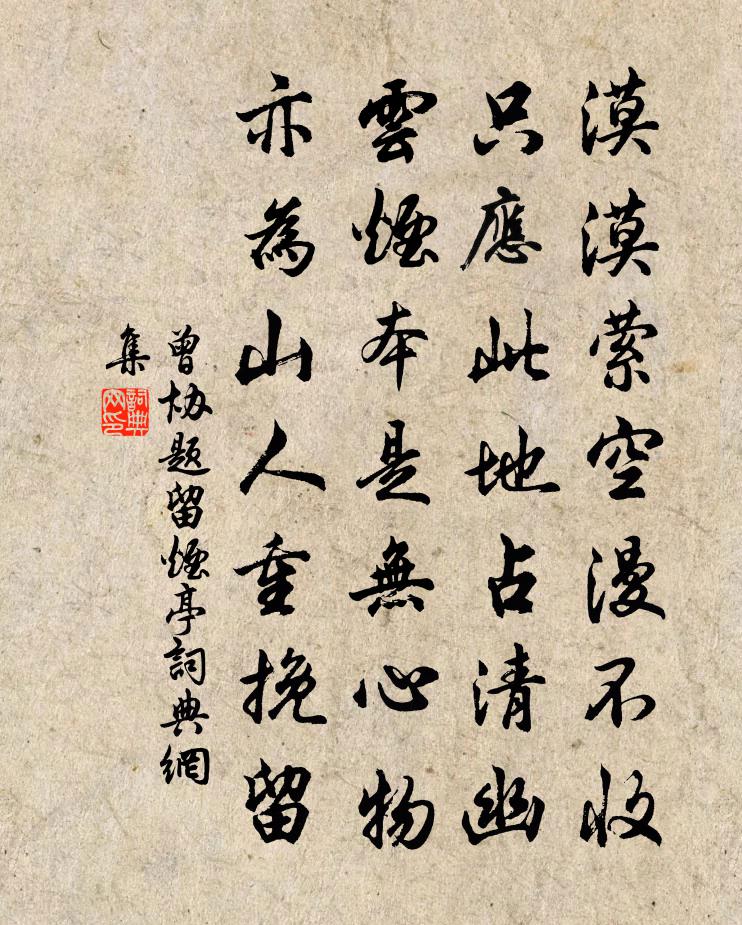 漠漠萦空漫不收
只應此地占清幽
雲煙本是無心物
亦為山人重挽留
曾协题留煙亭詞典網
集
詞典
网印